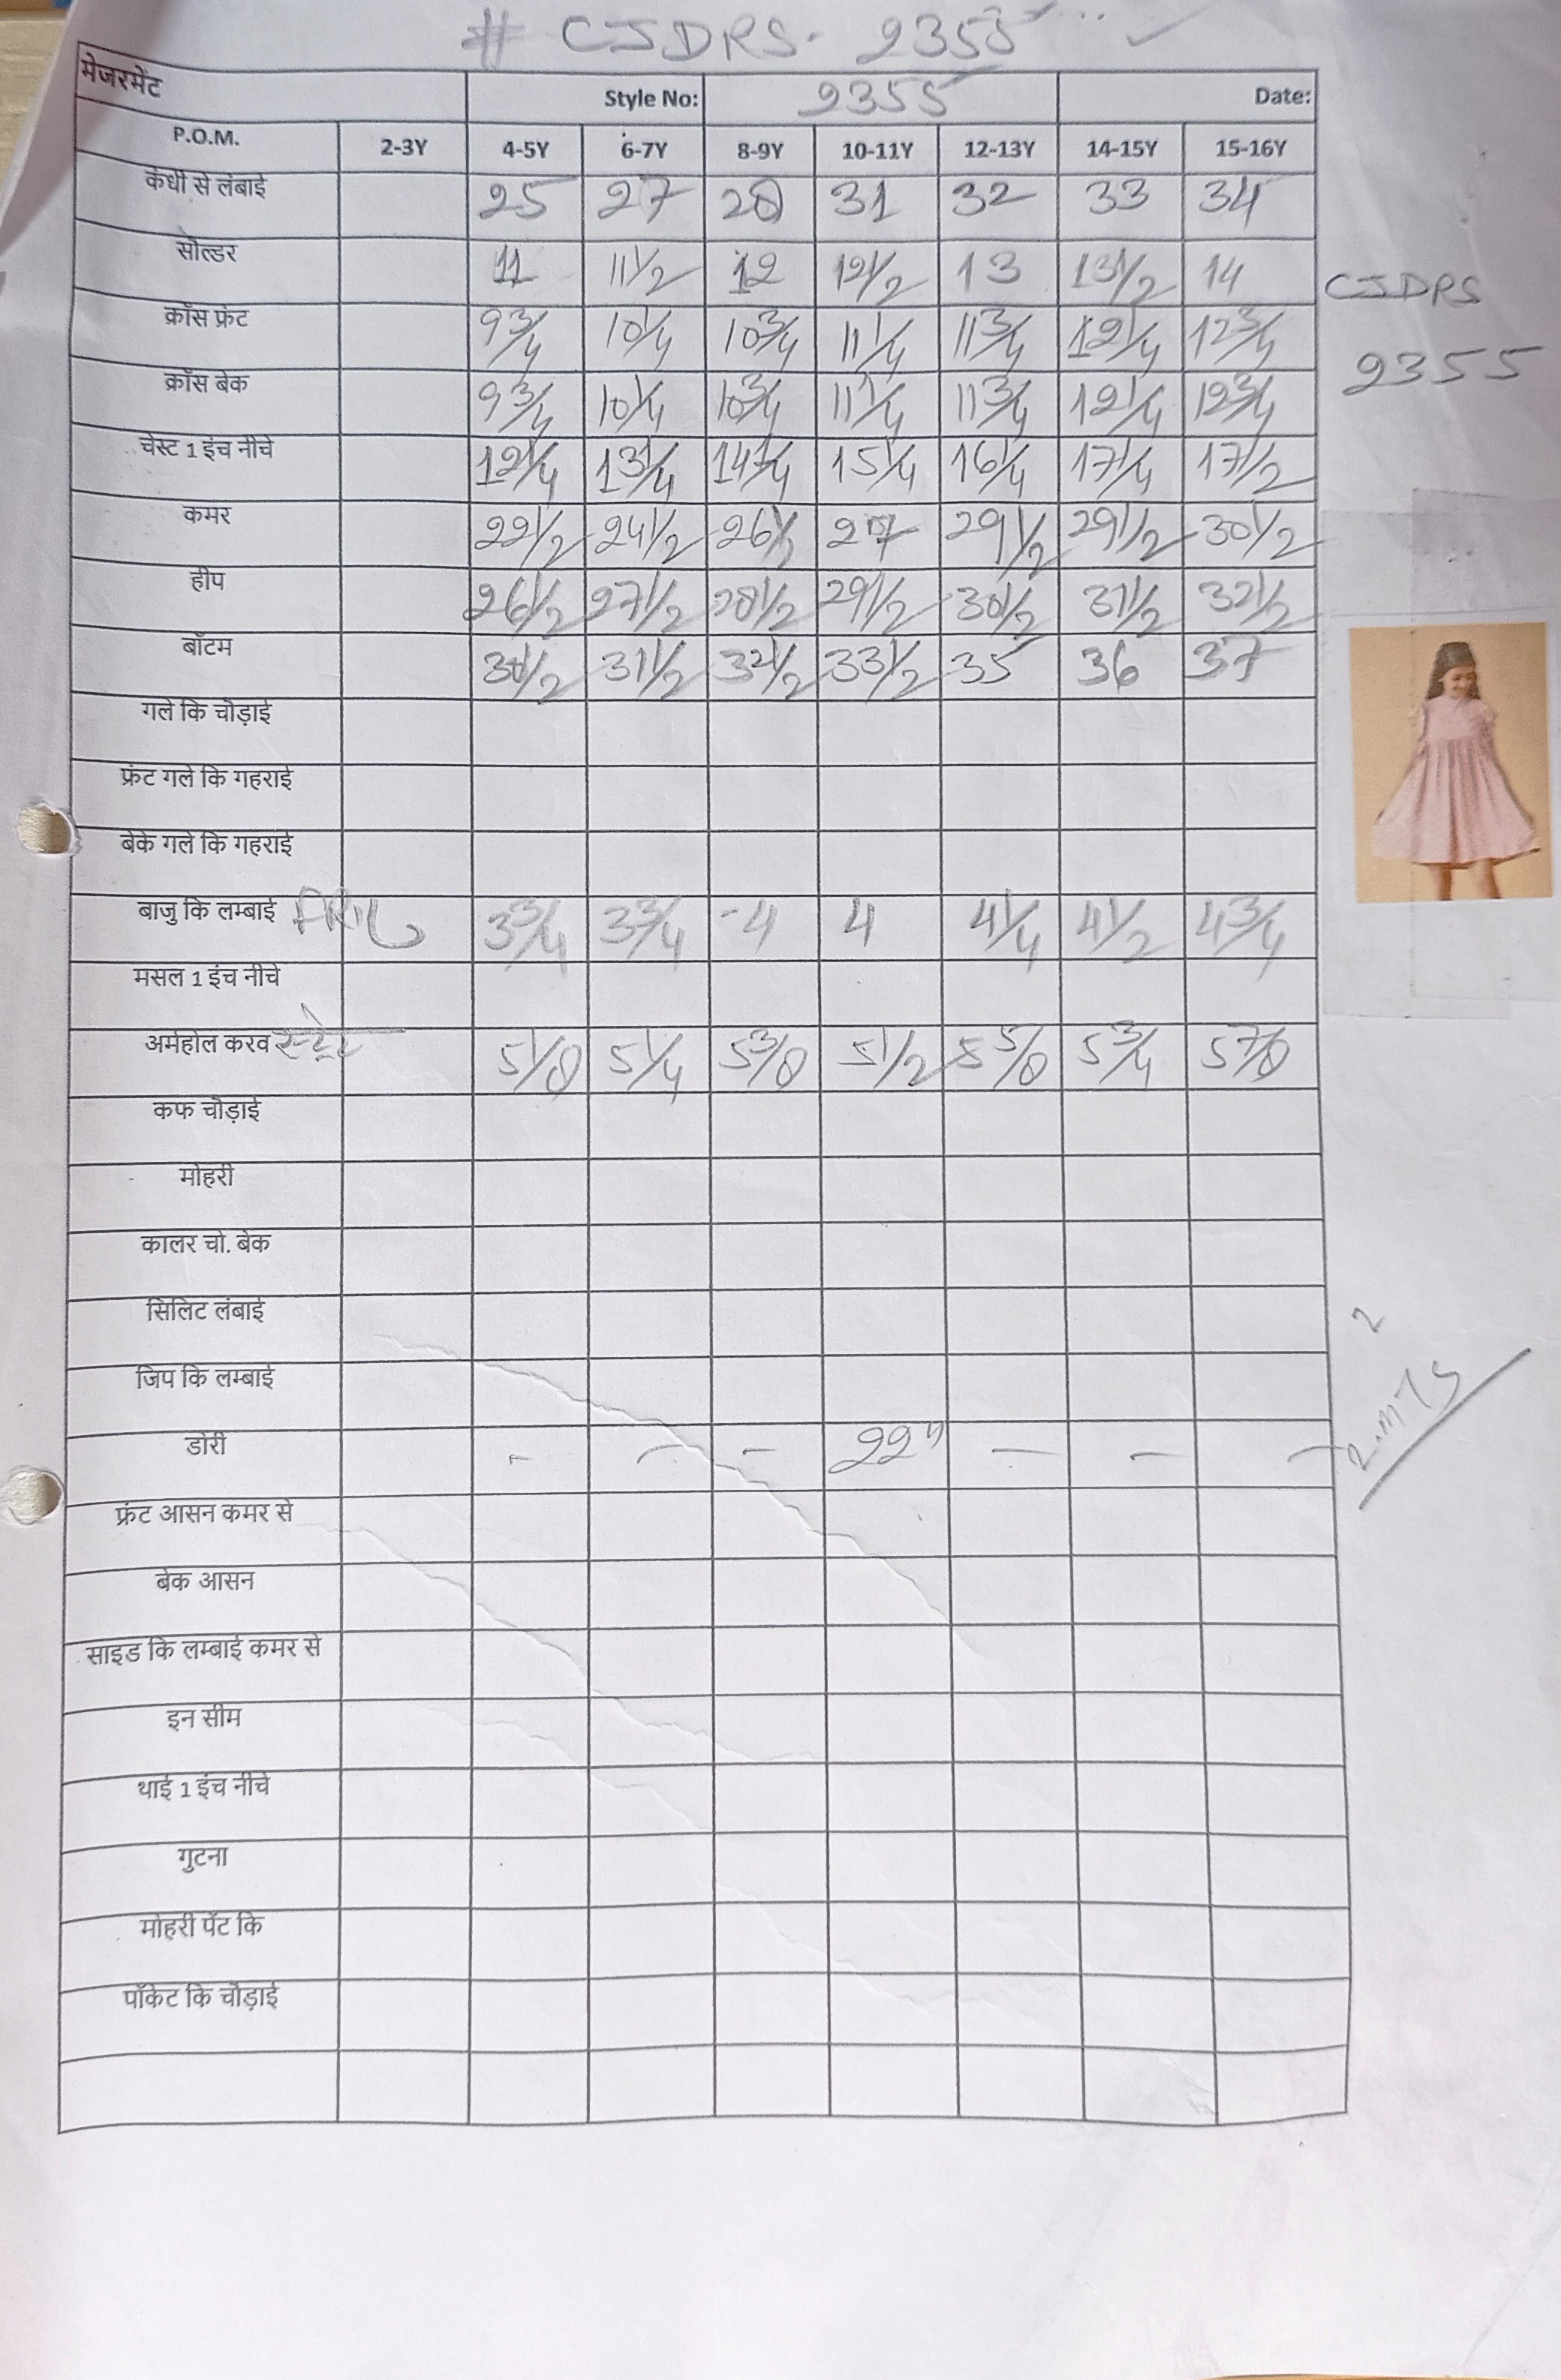 # CJDRS. 2355
मेजरमेंट Style No: 2355 Date:
P.O.M. 2-3Y 4-5Y 6-7Y 8-9Y 10-11Y 12-13Y 14-15Y 15-16Y
कंधी से लंबाई 25 27 28 31 32 33 34
सोल्डर 11 11 1/2 12 12 1/2 13 13 1/2 14
CJDRS
क्रॉस फ्रंट 9 3/4 10 1/4 10 3/4 11 1/4 11 3/4 12 1/4 12 3/4
2355
क्रॉस बेक 9 3/4 10 1/4 10 3/4 11 1/4 11 3/4 12 1/4 12 3/4
चेस्ट 1 इंच नीचे 12 1/4 13 1/4 14 1/4 15 1/4 16 1/4 17 1/4 17 1/2
कमर 22 1/2 24 1/2 26 1/2 27 29 1/2 29 1/2 30 1/2
हीप 26 1/2 27 1/2 28 1/2 29 1/2 30 1/2 31 1/2 32 1/2
बॉटम 30 1/2 31 1/2 32 1/2 33 1/2 35 36 37
गले कि चौड़ाई
फ्रंट गले कि गहराई
बेके गले कि गहराई
बाजु कि लम्बाई 3 3/4 3 3/4 4 4 4 1/4 4 1/2 4 3/4
मसल 1 इंच नीचे
अर्महोल करव स्ट्रेट 5 1/8 5 1/4 5 3/8 5 1/2 5 5/8 5 3/4 5 7/8
कफ चौड़ाई
मोहरी
कालर चो. बेक
सिलिट लंबाई
2
जिप कि लम्बाई
डोरी - - - 22" - - -
2.mts
फ्रंट आसन कमर से
बेक आसन
साइड कि लम्बाई कमर से
इन सीम
थाई 1 इंच नीचे
गुटना
मोहरी पॅट कि
पॉकेट कि चौड़ाई